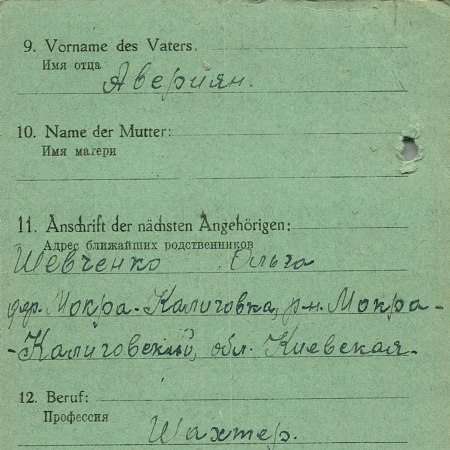 9. Vorname des Vaters.
Имя отца
Авериян.
10. Name der Mutter:
Имя матери
11. Anschrift der nächsten Angehörigen:
Адрес ближайших родственников
Шевченко Ольга
дер. Мокра-Калиговка, р-н. Мокра-
-Калиговский, обл. Киевская.
12. Beruf:
Профессия
Шахтер.